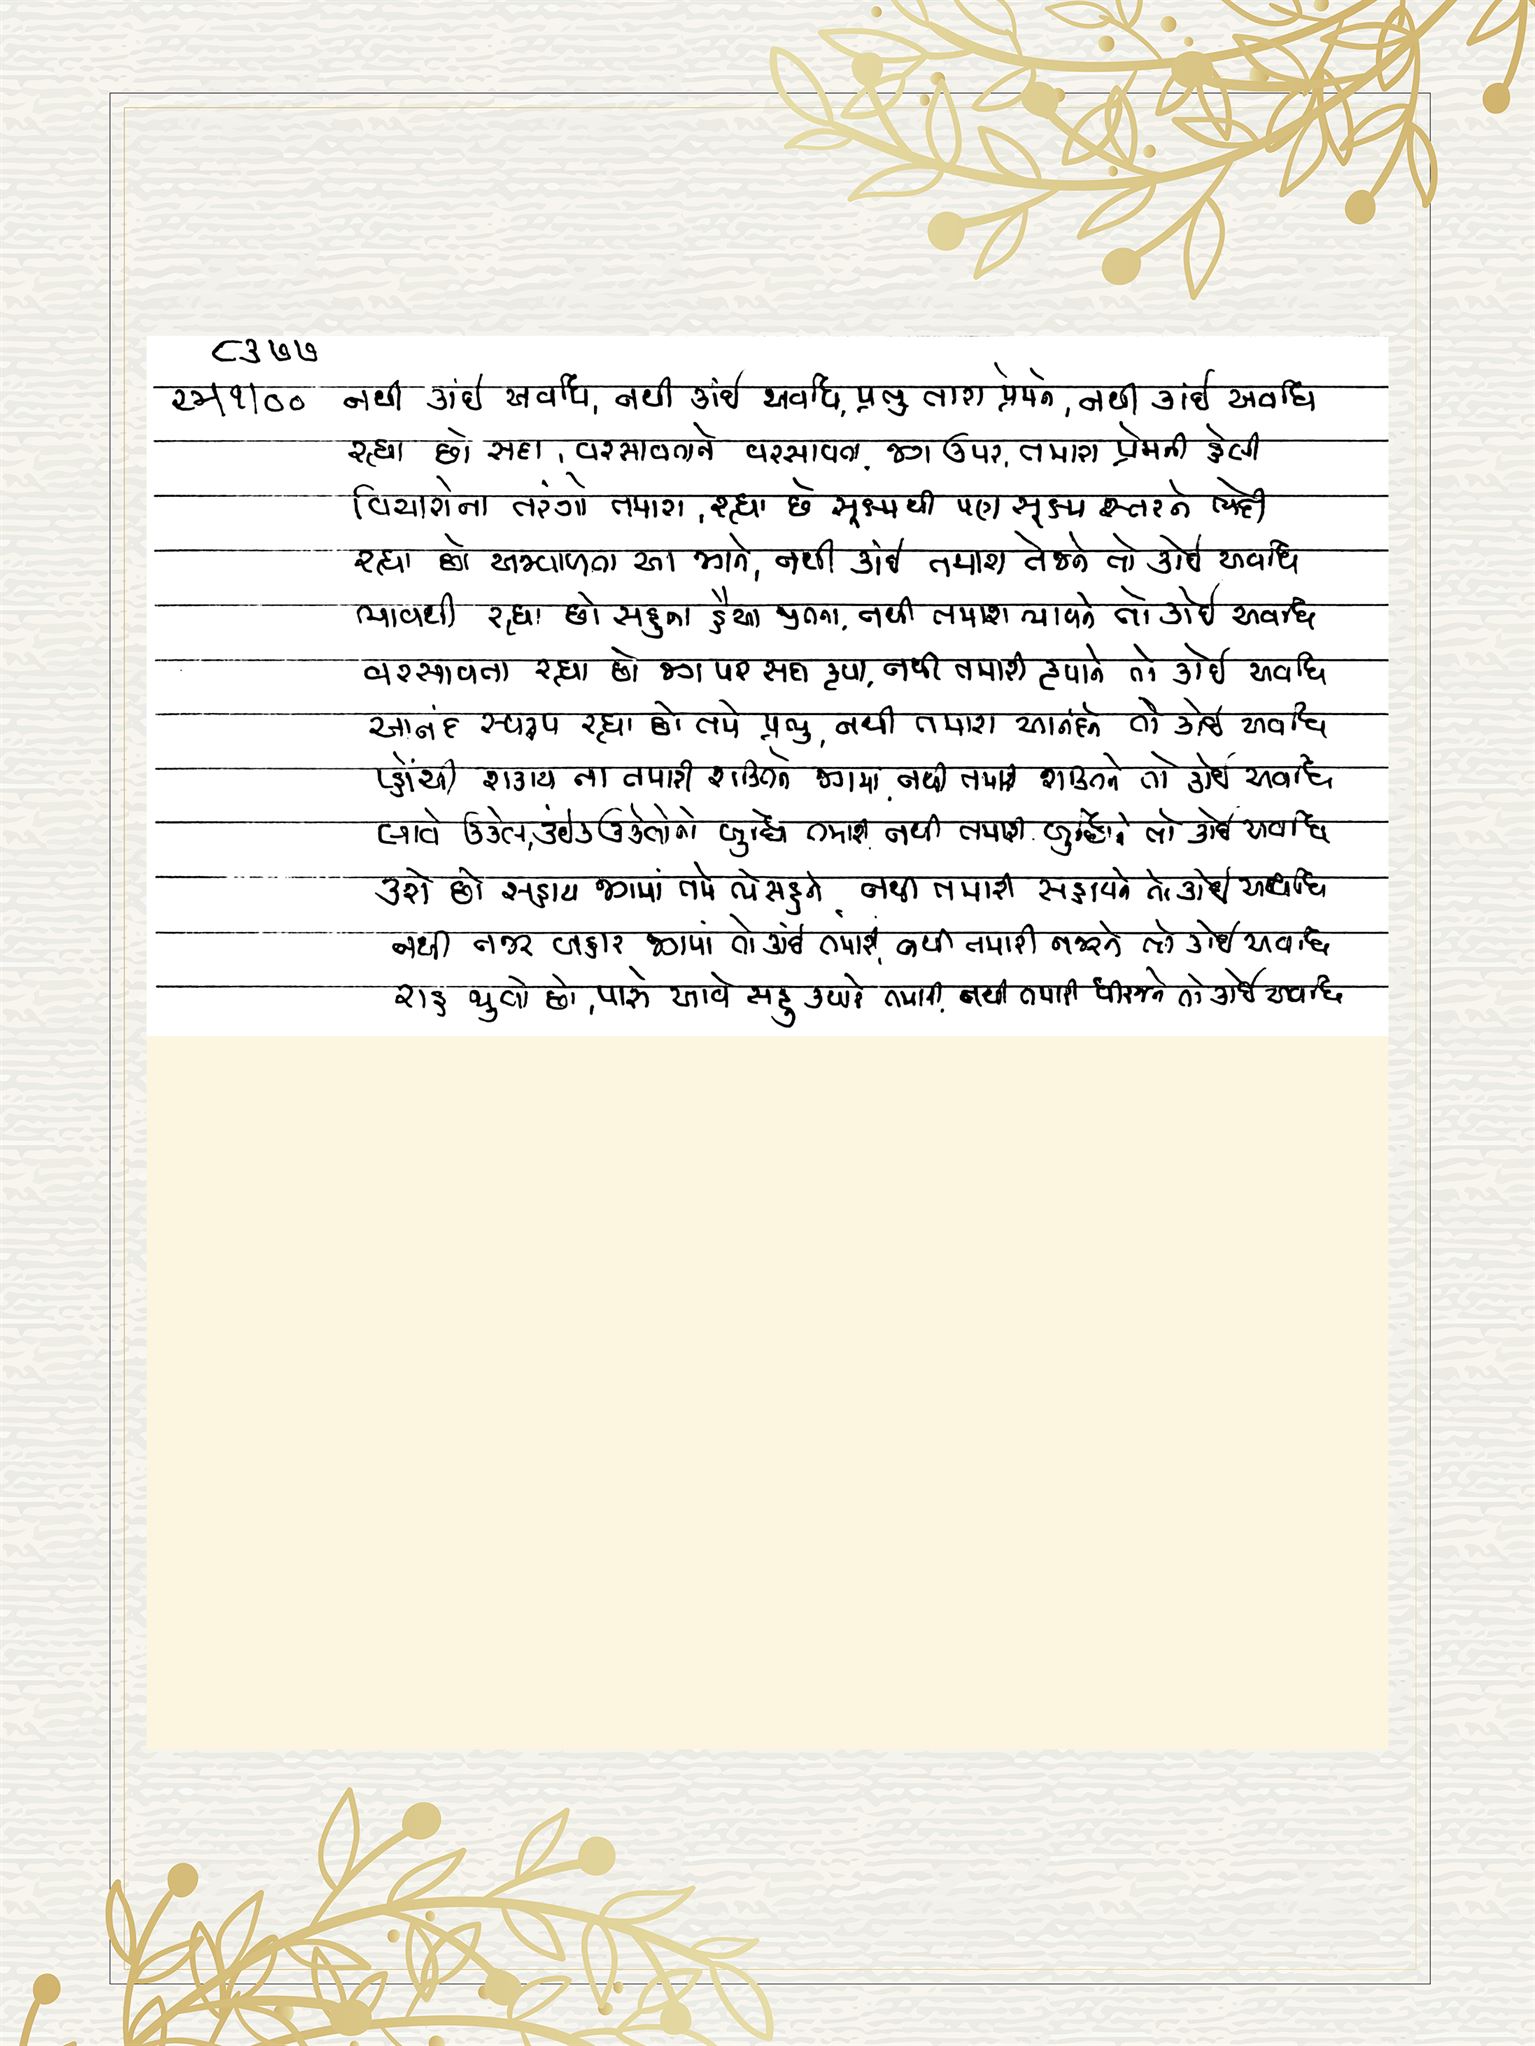 ૮૩૭૭
૨૩/૧/૦૦ નથી કાંઈ અવધિ, નથી કાંઈ અવધિ, પ્રભુ તારા પ્રેમને, નથી કાંઈ અવધિ
રહ્યા છો સદા, વરસાવતાને વરસાવતા, જગ ઉપર, તમારા પ્રેમની હેલી
વિચારોના તરંગો તમારા, રહ્યા છે સૂક્ષ્મથી પણ સૂક્ષ્મ સ્તરને ભેદી
રહ્યા છો અજવાળતા આ જગને, નથી કાંઈ તમારા તેજને તો કોઈ અવધિ
ભાવથી રહ્યા છો સહુના હૈયા જીતતા, નથી તમારા ભાવને તો કોઈ અવધિ
વરસાવતા રહ્યા છો જગ પર સદા કૃપા, નથી તમારી કૃપાને તો કોઈ અવધિ
આનંદ સ્વરૂપ રહ્યા છો તમે પ્રભુ, નથી તમારા આનંદને તો કોઈ અવધિ
પહોંચી શકાય ના તમારી શક્તિને જગમાં, નથી તમારી શક્તિને તો કોઈ અવધિ
લાવે ઉકેલ, કંઈક ઉકેલોનો બુદ્ધિ તમારી, નથી તમારી બુદ્ધિને તો કોઈ અવધિ
કરો છો સહાય જગમાં તમે તો સહુને, નથી તમારી સહાયને તો કોઈ અવધિ
નથી નજર બહાર જગમાં તો કાંઈ તમારી, નથી તમારી નજરને તો કોઈ અવધિ
રાહ જુવો છો, પાસે આવે સહુ ક્યારે તમારી, નથી તમારી ધીરજને તો કોઈ અવધિ